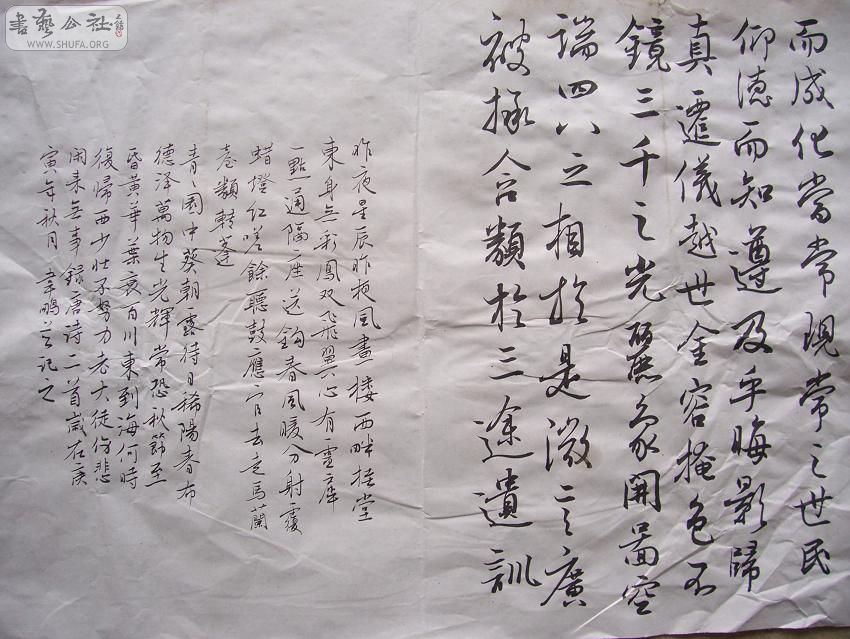 書藝公社
WWW.SHUFA.ORG
而成化當常現常之世民
仰德而知遵及乎晦影歸
真遷儀越世金容掩色不
鏡三千之光麗象開圖空
端四八之相於是微言廣
被拯含類於三途遺訓
昨夜星辰昨夜風畫樓西畔桂堂
東身无彩鳳双飛翼心有靈犀
一點通隔座送鈎春風暖分射覆
蜡燈紅嗟餘聽鼓應官去走馬蘭
臺類轉蓬
青々園中葵朝露待日稀陽春布
德泽萬物生光輝常恐秋節至
昏黄華葉衰百川東到海何時
復歸西少壯不努力老大徒伤悲
闲来無事録唐诗二首歲在庚
寅年秋月 韋鵬记之